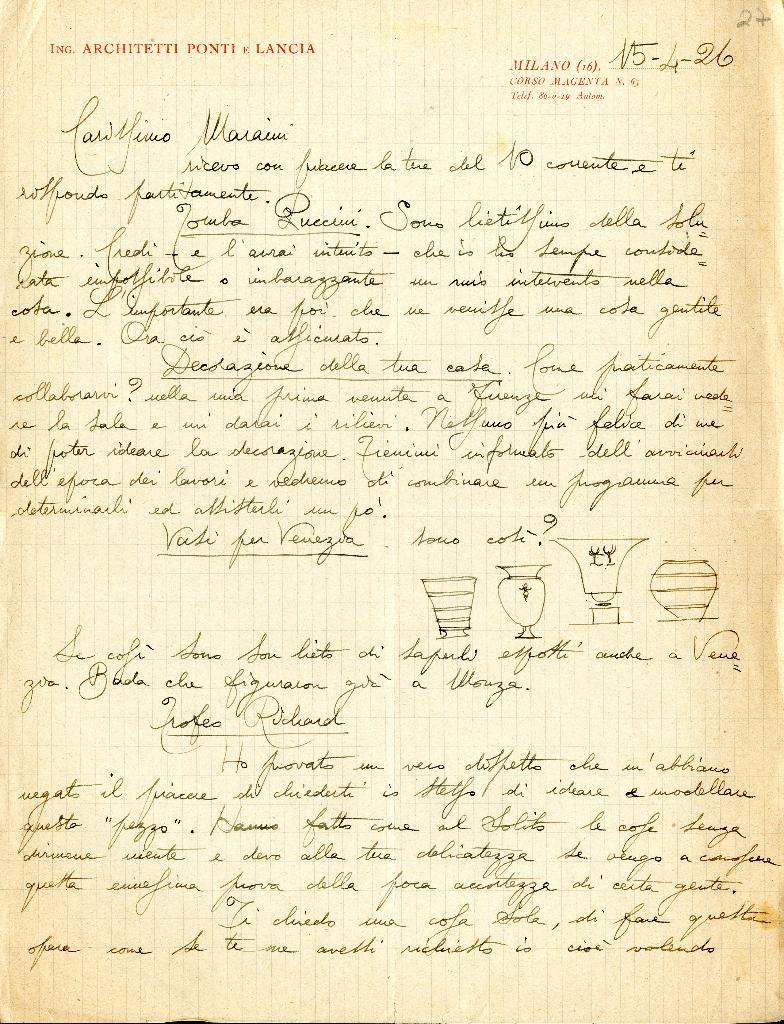 27
ING. ARCHITETTI PONTI E LANCIA
MILANO (16), 15-4-26
CORSO MAGENTA N. 65
Telef. 86-0-19 Autom.
Carissimo Maraini
ricevo con piacere la tua del 10 corrente e ti
rispondo partitamente.
Tomba Puccini. Sono lietissimo della solu=
zione. Credi - e l'avrai intuito - che io ho sempre conside=
rata impossibile o imbarazzante un mio intervento nella
cosa. L'importante era poi che ne venisse una cosa gentile
e bella. Ora ciò è assicurato.
Decorazione della tua casa. Come praticamente
collaborarvi? nella mia prima venuta a Firenze mi farai vede=
re la sala e mi darai i rilievi. Nessuno più felice di me
di poter ideare la decorazione. Tienimi informato dell'avvicinarsi
dell'epoca dei lavori e vedremo di combinare un programma per
determinarli ed assisterli un po'.
Vasi per Venezia sono così?
Se così sono son lieto di saperli esposti anche a Vene=
zia. Bada che figuraron già a Monza.
Trofeo Richard
Ho provato un vero dispetto che m'abbiano
negato il piacere di chiederti io stesso di ideare e modellare
questo "pezzo". Hanno fatto come al solito le cose senza
dirmene niente e devo alla tua delicatezza se vengo a conoscere
questa ennesima prova della poca accortezza di certa gente.
Ti chiedo una cosa sola, di fare questa
opera come se te ne avessi richiesto io cioè volendo